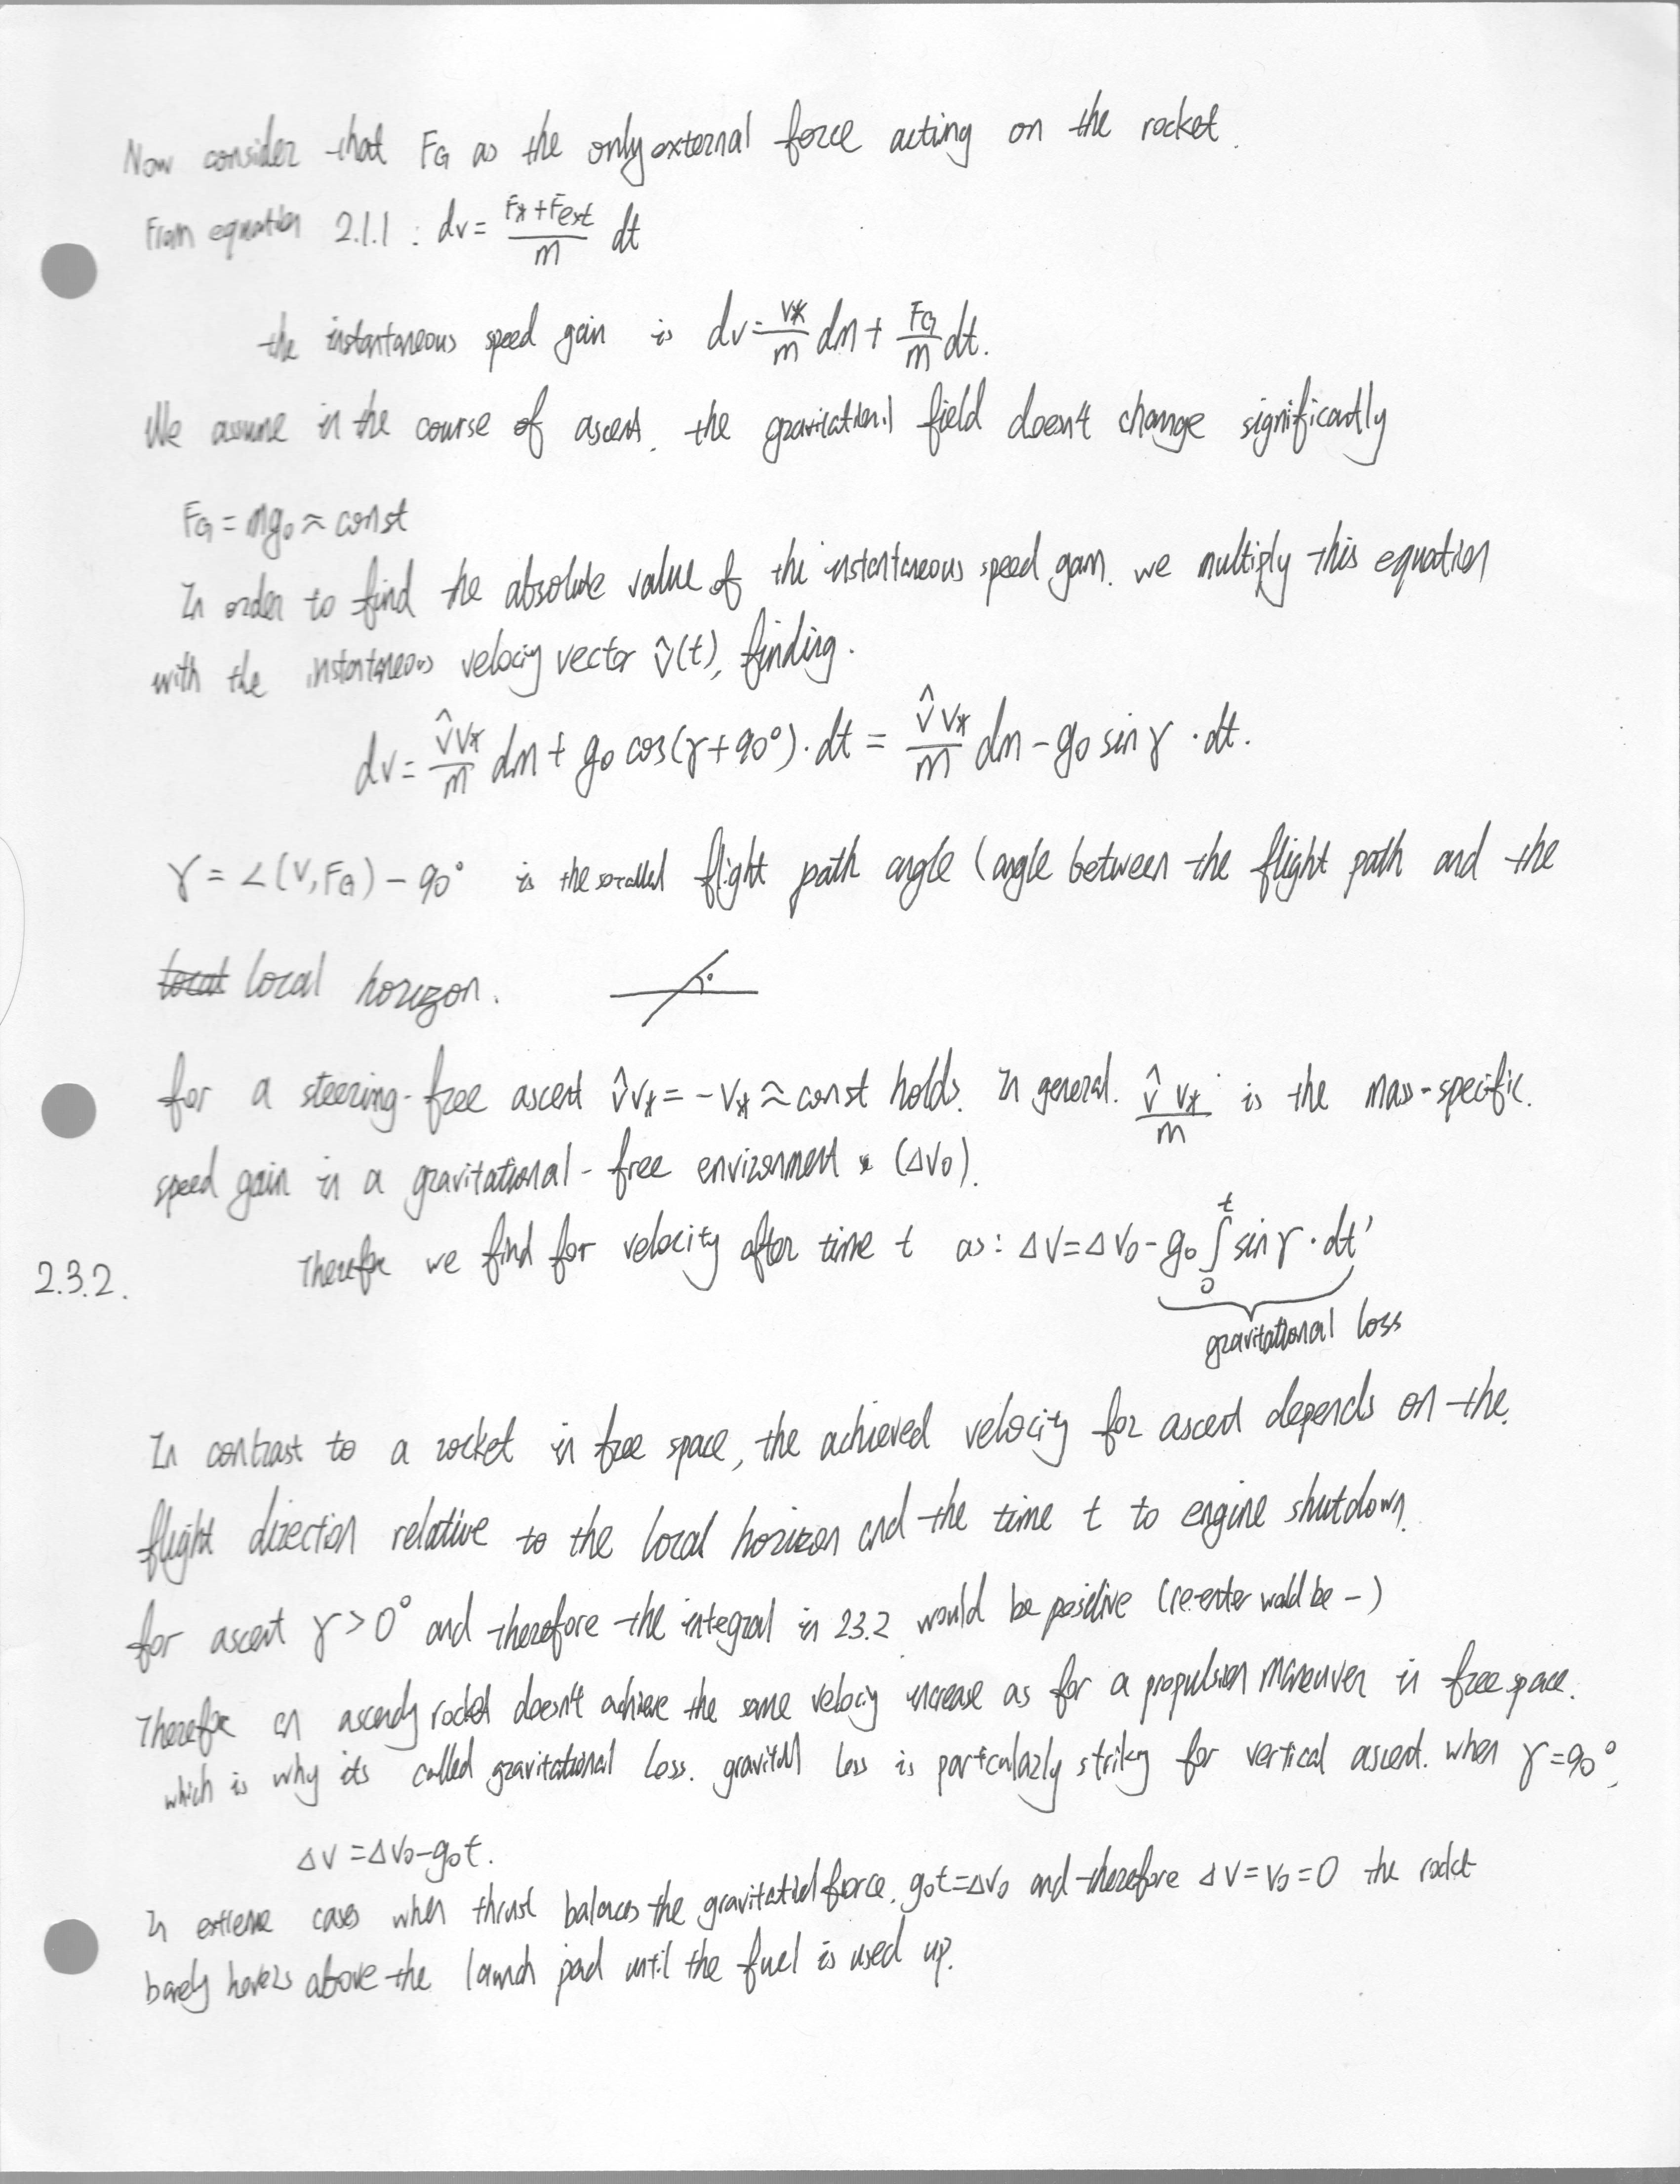 Now consider that FG as the only external force acting on the rocket.
From equation 2.1.1 : dv = (F* + Fext)/m dt
the instantaneous speed gain is dv = v*/m dm + FG/m dt.
We assume in the course of ascent, the gravitational field doesn't change significantly
FG = mg₀ ≈ const
In order to find the absolute value of the instantaneous speed gain. we multiply this equation
with the instantaneous velociy vector v̂(t), finding.
dv = v̂v*/m dm + g₀ cos(γ+90°)·dt = v̂v*/m dm - g₀ sin γ ·dt.
γ = ∠(v, FG) - 90° is the socalled flight path angle (angle between the flight path and the
local local horizon.
for a steering-free ascent v̂v* = -v* ≈ const holds. In general. v̂v*/m is the mass-specific.
speed gain in a gravitational-free environment (Δv₀).
2.3.2. Therefore we find for velocity after time t as: Δv = Δv₀ - g₀ ∫₀ᵗ sin γ · dt'
gravitational loss
In contrast to a rocket in free space, the achieved velocity for ascent depends on the
flight direction relative to the local horizon and the time t to engine shutdown.
for ascent γ > 0° and therefore the integral in 2.3.2 would be positive (re-enter would be -)
Therefore an ascendy rocket doesn't achieve the same velociy increase as for a propulsion maneuver in free space.
which is why its called gravitational loss. gravital loss is particularly strikng for vertical ascent. when γ = 90°,
Δv = Δv₀ - g₀t.
In extreme cases when thrust balances the gravitational force, g₀t = Δv₀ and therefore Δv = v₀ = 0 the rocket
barely hovers above the launch pad until the fuel is used up.